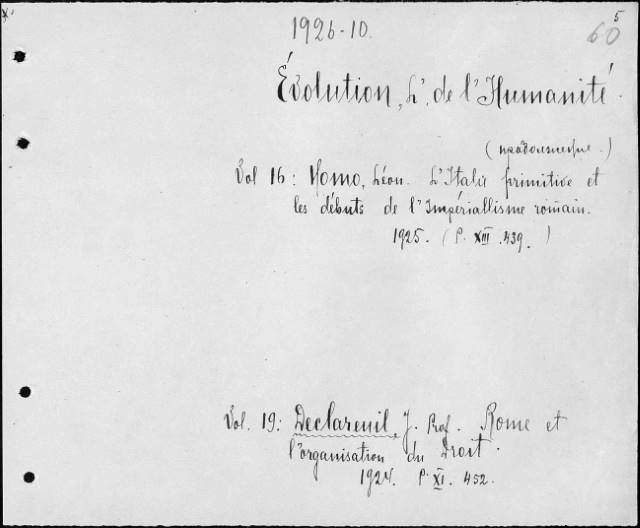 1926-10.
5
60
Évolution, L', de l'Humanité.
(продолжение.)
Vol 16: Homo, Léon. L'Italie primitive et
les débuts de l'Impériallisme romain.
1925. (P. XIII. 439.)
Vol. 19: Declareuil, J. Prof. Rome et
l'organisation du Droit.
1924. P. XI. 452.